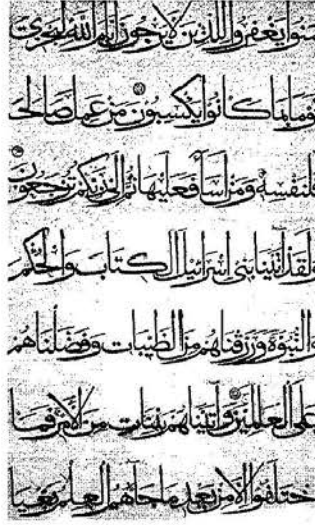 منوا يغفروا للذين لا يرجون أيام الله ليجزي
قوما بما كانوا يكسبون من عمل صالحا
فلنفسه ومن أسا فعليها ثم إلى ربكم ترجعون
ولقد آتينا بني إسرائيل الكتاب والحكم
والنبوة ورزقناهم من الطيبات وفضلناهم
على العالمين وآتيناهم بينات من الأمر فما
اختلفوا إلا من بعد ما جاهم العلم بغيا